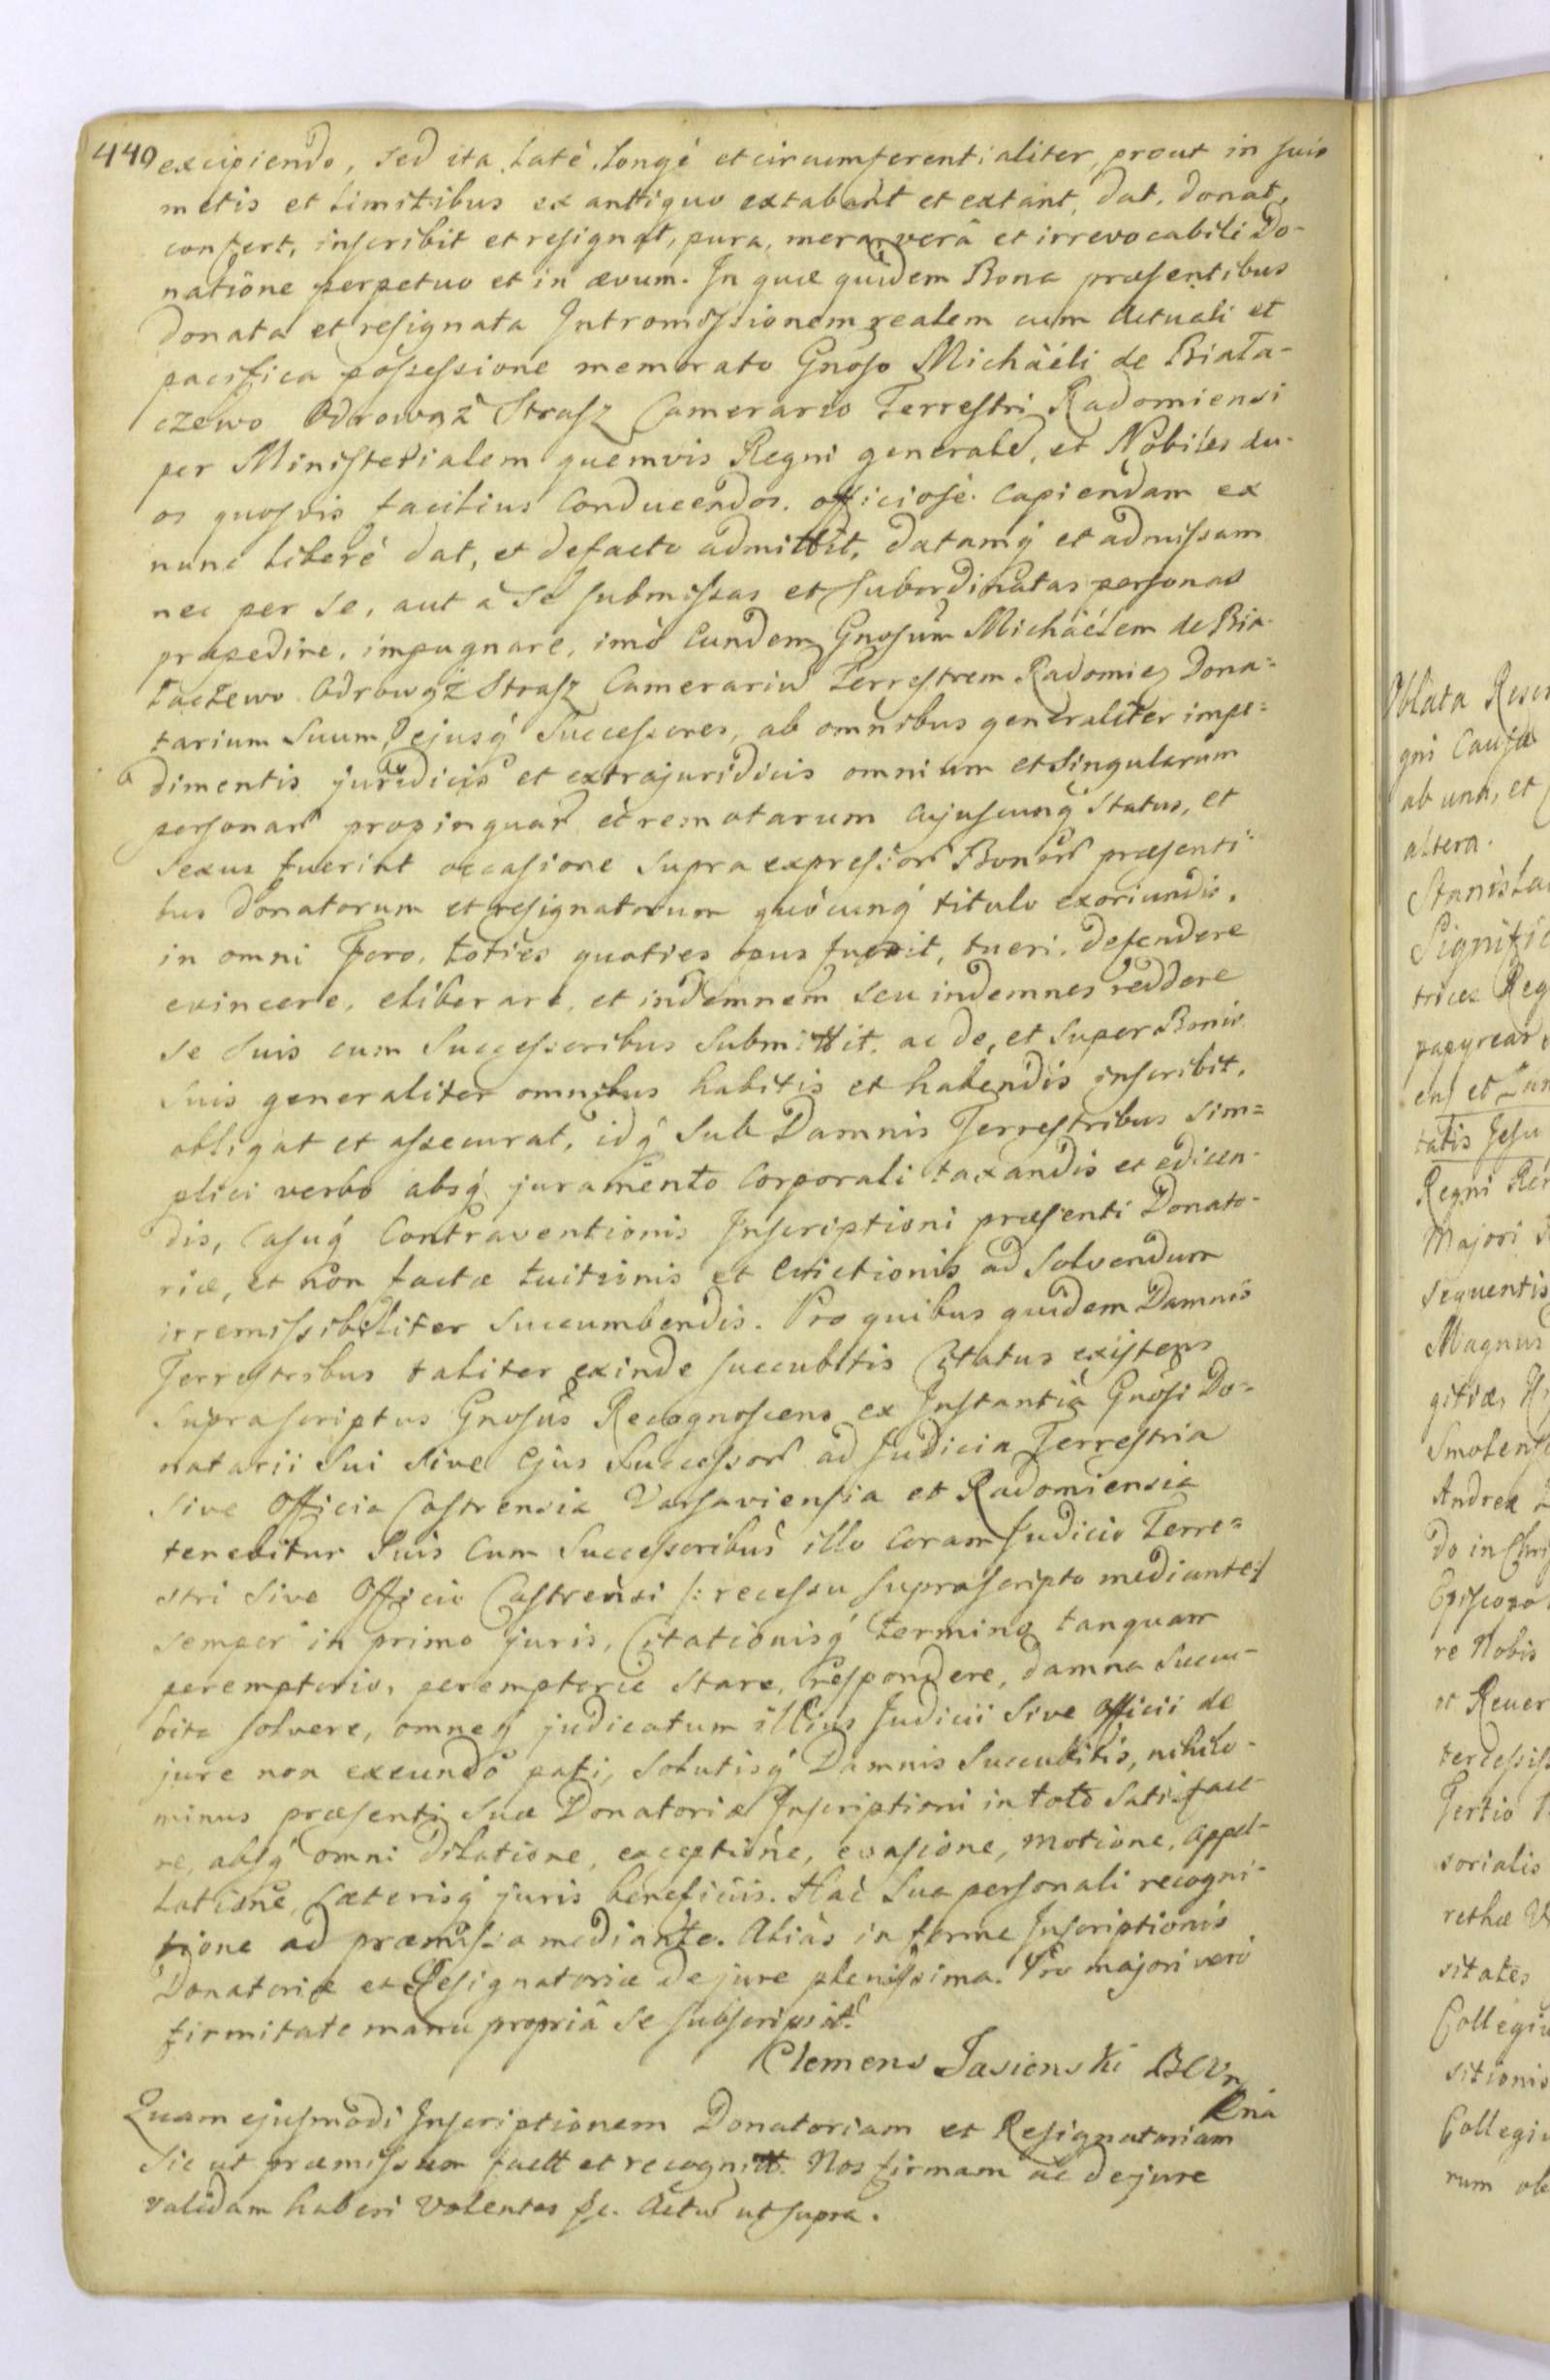 440 excipiendo, sed ita late longé et circumferentialiter, prout in suis
metis et limitibus ex anttiquo extabant et extant, dat, donat,
confert, inscribit et resignat, pura, mera, verâ et irrevocabili Do-
natione perpetuo et in ævum. In quæ quidem Bona præsentibus
donata et resignata Intromissionem realem cum Actuali et
pacifica possessione memorato Gnoso Michaëli de Biała-
czewo Odrowąż Strasz Camerario Terrestri Radomiensi
per Ministerialem quemvis Regni generalẽ, et Nobiles du-
os quosvis facilius Conducendos, officiosè Capiendam ex
nunc liberé dat, et defacto admittit, datamq́ et admissam
nec per se, aut à se submissas et subordinatas personas
præpedire, impugnare, imò Eundem Gnosum Michaëlem de Bia-
łaczewo Odrowąż Strasz Camerariũ Terrestrem Radomieñ Dona-
tarium Suum, ejusq́ Successores, ab omnibus generaliter impe-
dimentis juridicis et extrajuridicis omnium et singularum
personar̃ propinquar̃ et remotarum cujuscunq́ Status, et
sexus fuerint occasione supra expressor̃ Bonor̃ præsenti-
bus donatorum et resignatorum quòcunq́ titulo exoriundis,
in omni Foro, toties quoties opus fuerit, tueri, defendere
evincere, eliberare, et indemnem seu indemnes reddere
se suis cum Successoribus submittit, ac de, et super Bonis
suis generaliter omnibus habitis et habendis inscribit,
obligat et assecurat, idq́ sub Damnis Terrestribus sim-
plici verbo absq́ juramento Corporali taxandis et edicen-
dis, Casuq́ Contraventionis Inscriptioni præsenti Donato-
riæ, et non factæ tuitionis et Evictionis ad solvendum
irremissibiliter succumbendis. Pro quibus quidem Damnis
Terrestribus taliter exinde succubitis Citatus existens
suprascriptus Gnosus Recognoscens ex Instantia Gnosi Do-
natarii sui sive Ejus Successor̃ ad Judicia Terrestria
sive Officia Castrensia Varsaviensia et Radomiensia
tenebitur Suis Cum Successoribus illo Coram Judicio Terre-
stri sive Officio Castrensi /: recessu suprascripto mediante :/
semper in primo juris, Citationisq́ termino tanquam
peremptorio, peremptoriè stare, respondere, damna succu-
bita solvere, omneq́ judicatum illius Judicii sive Officii de
jure non exeundo pati, solutisq́ Damnis succubitis, nihilo-
minus præsenti suæ Donatoriæ Inscriptioni in toto satisface-
re, absq́ omni dilatione, exceptione, evasione, motione, appel-
latione, cæterisq́ juris beneficiis. Hac sua personali recogni-
tione ad præmissa mediante. Aliàs in forma Inscriptionis
Donatoriæ et Resignatoriæ de jure plenissima. Pro majori verò
firmitate manu propriâ se subscripsit.
Clemens Jasienski BCVr
Quam ejusmodi Inscriptionem Donatoriam et Resignatoriam
sic ut præmissum factt et recognitt. Nos firmam ac de jure
validam haberi volentes &c. Actũ ut supra.
Oblata
gni Causæ
ab una, et
altera.
Regni
Majori
sequentis
Magnus
Andreæ
Episcopo
re Nobis
et Rever
Tertio
sorialis
sitates
Collegiu
sitionis
Collegiu